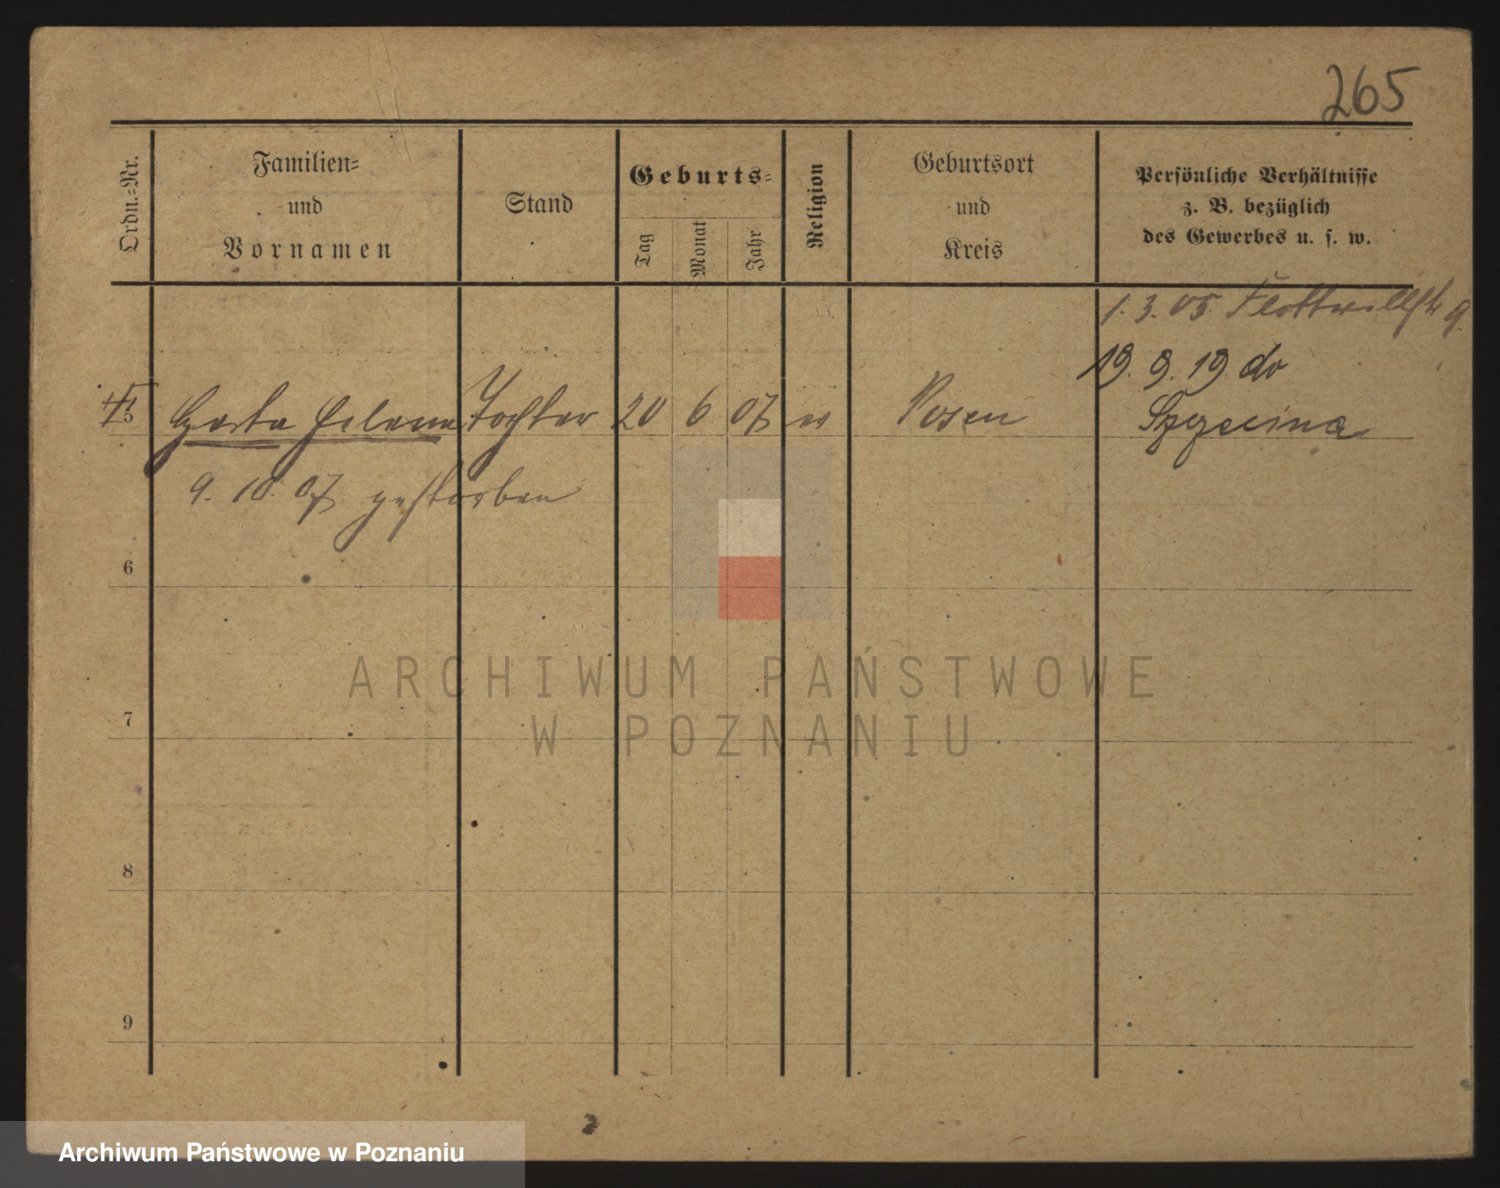 265
Ordn.-Nr.
Familien-
und
Vornamen
Stand
Geburts-
Tag
Monat
Jahr
Religion
Geburtsort
und
Kreis
Persönliche Verhältnisse
z. B. bezüglich
des Gewerbes u. s. w.
1. 3. 05. Flottwellstr 9.
19. 9. 19 do
5 Gerta Helene Tochter 20 6 07 Posen Szczecina
9. 10. 07 gestorben
6
7
8
9
ARCHIWUM PAŃSTWOWE
W POZNANIU
Archiwum Państwowe w Poznaniu